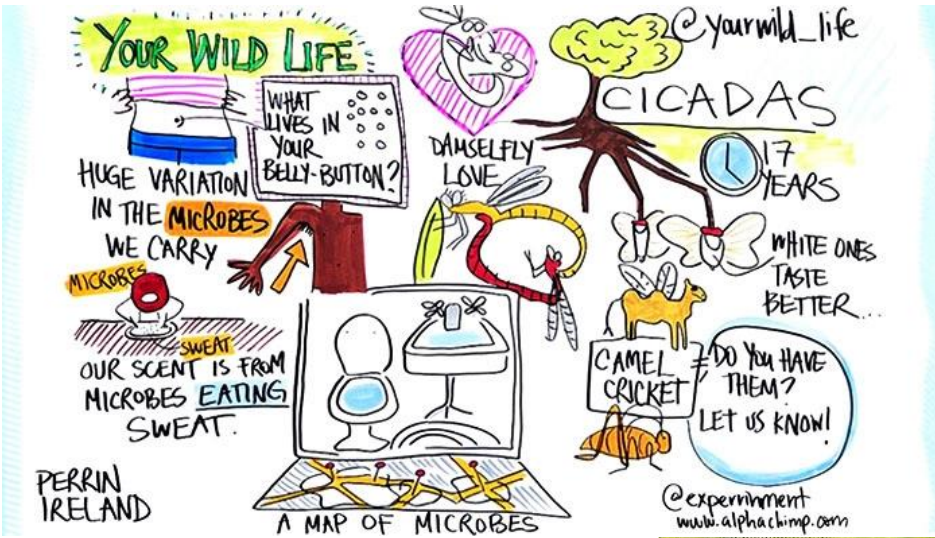 YOUR WILD LIFE
WHAT
LIVES IN
YOUR
BELLY-BUTTON?
HUGE VARIATION
IN THE MICROBES
WE CARRY
MICROBES
SWEAT
OUR SCENT IS FROM
MICROBES EATING
SWEAT.
PERRIN
IRELAND
DAMSELFLY
LOVE
A MAP OF MICROBES
@yourwild_life
CICADAS
17
YEARS
WHITE ONES
TASTE
BETTER...
CAMEL
CRICKET
≠
DO YOU HAVE
THEM?
LET US KNOW!
@experrinment
www.alphachimp.com